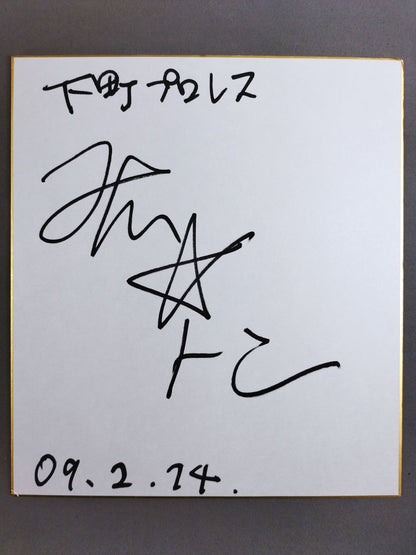 下町プロレス
☆
トン
09.2.14.